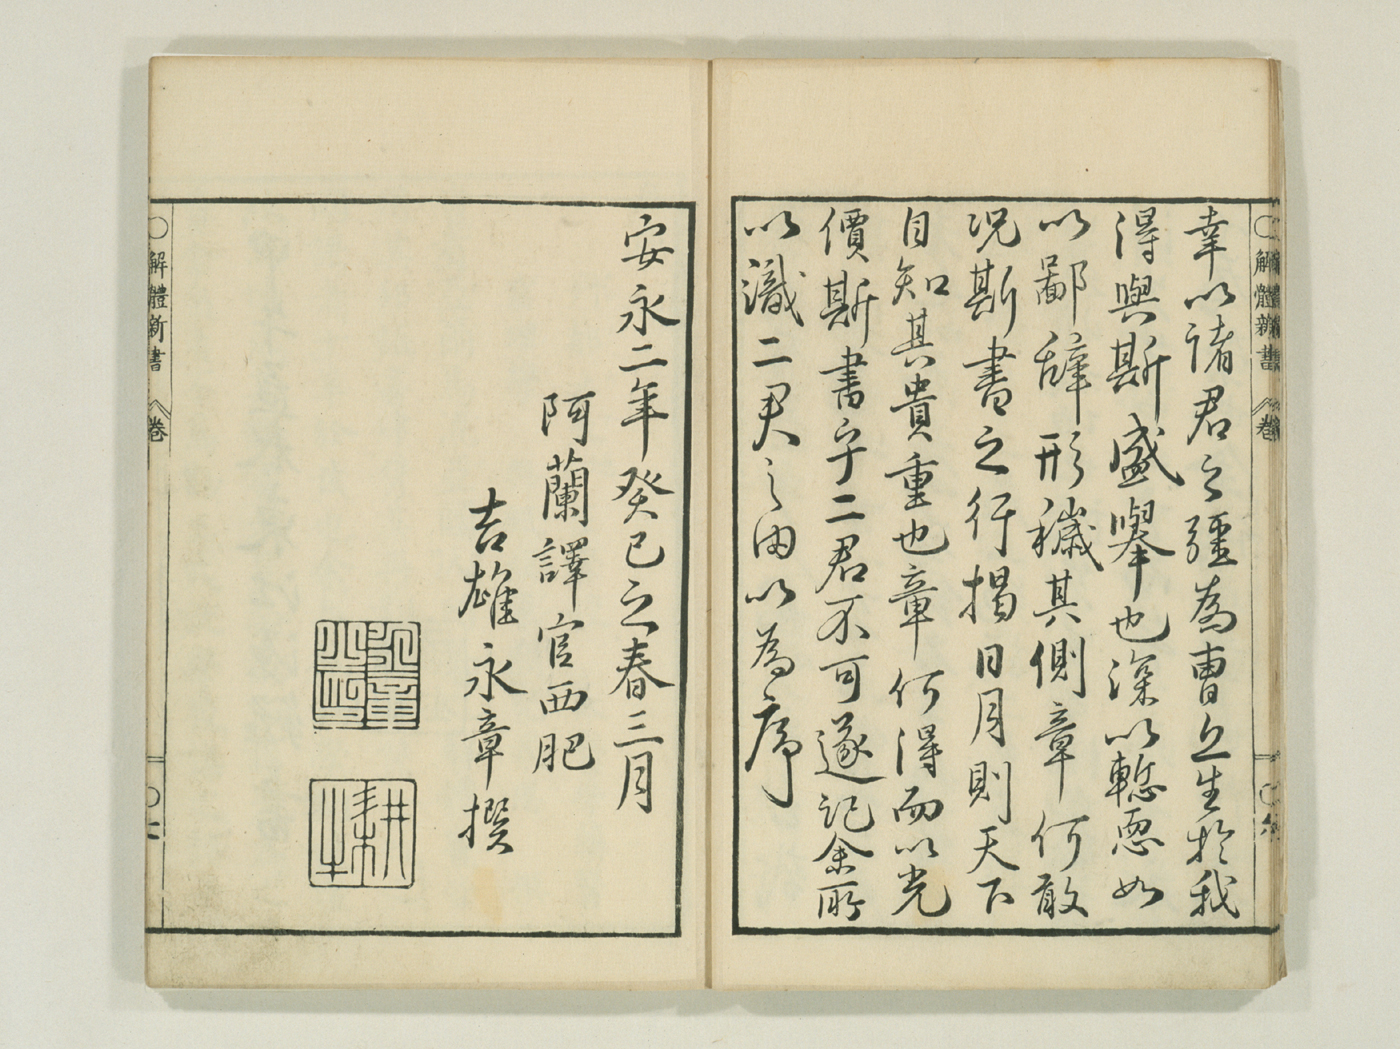 解體新書 卷
幸以諸君之疆為曹丘生於我
得與斯盛擧也深以慙恧如
以鄙辭形穢其側章何敢
況斯書之行揭日月則天下
自知其貴重也章何得而以光
價斯書乎二君不可遂記余所
以識二君之由以為序
安永二年癸巳之春三月
阿蘭譯官西肥
吉雄永章撰
耕牛
解體新書 卷